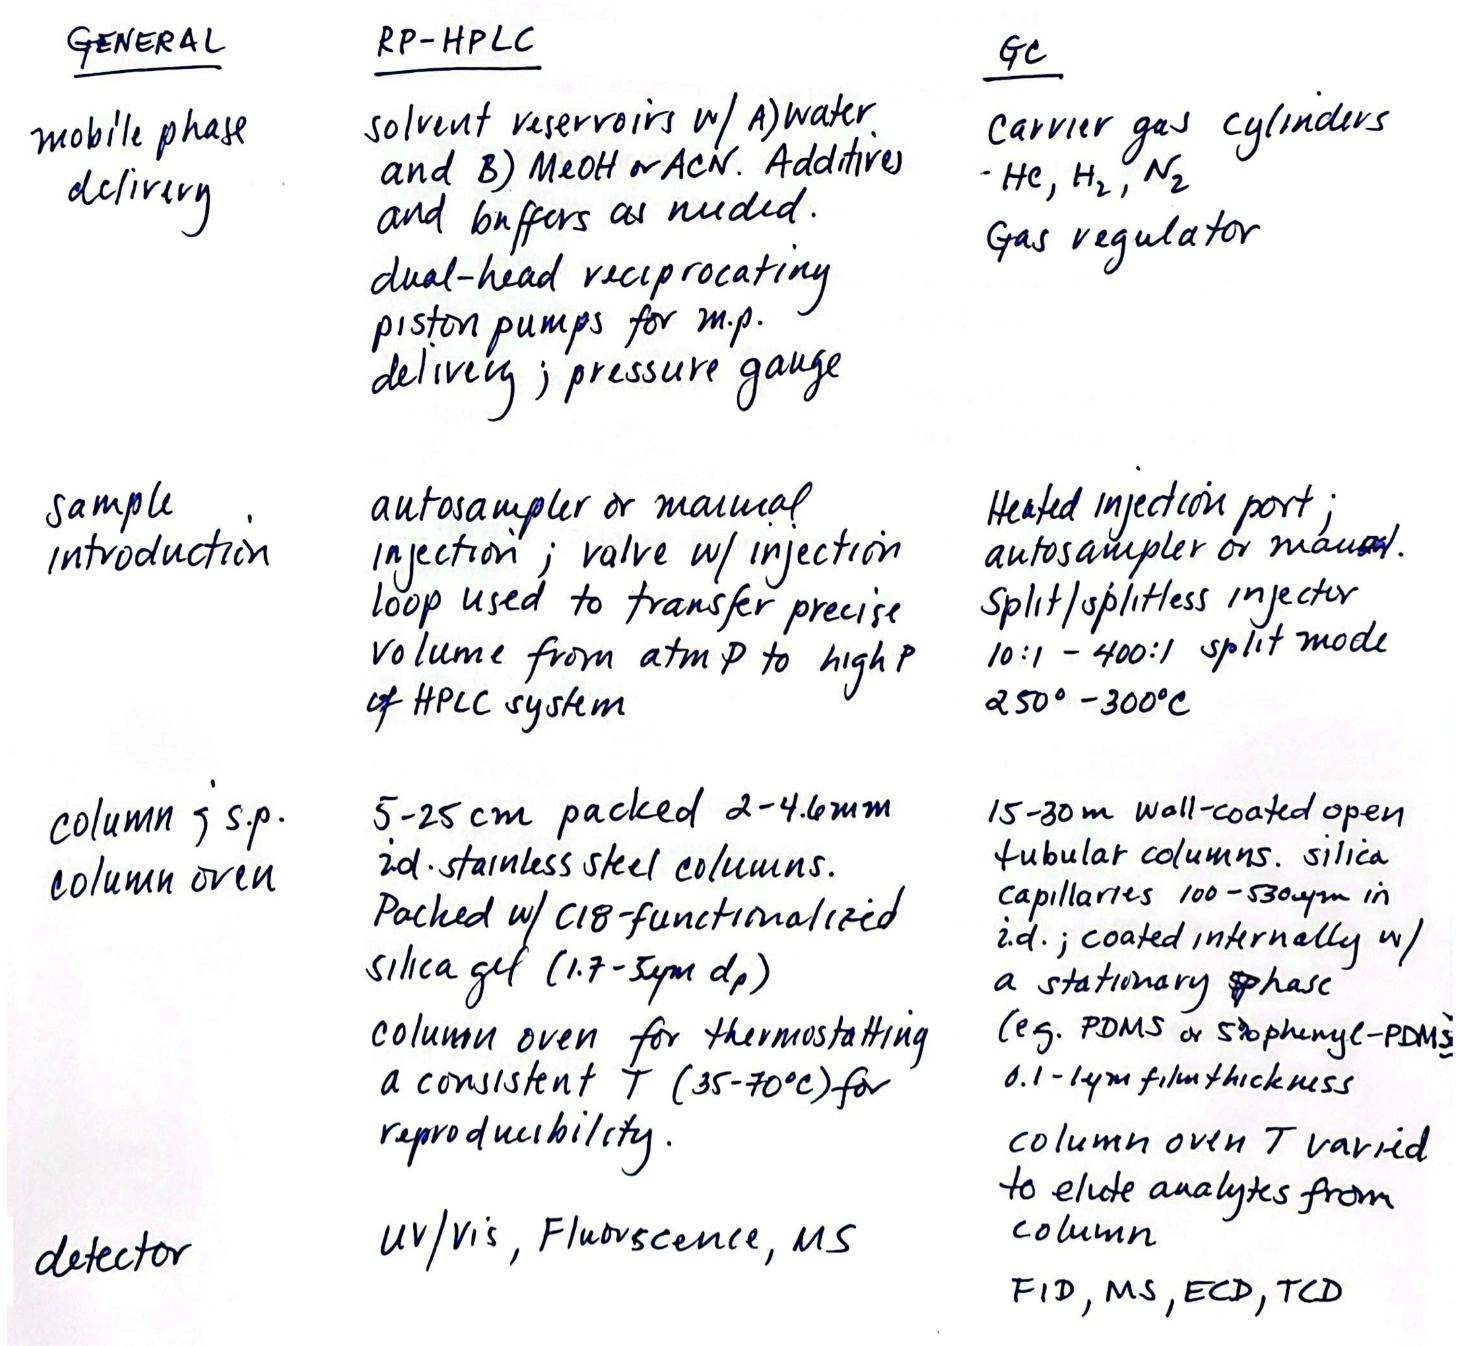 GENERAL
mobile phase
delivery
sample
introduction
column & s.p.
column oven
detector
RP-HPLC
solvent reservoirs w/ A) water
and B) MeOH or ACN. Additives
and buffers as needed.
dual-head reciprocating
piston pumps for m.p.
delivery; pressure gauge
autosampler or manual
injection; valve w/ injection
loop used to transfer precise
volume from atm P to high P
of HPLC system
5-25 cm packed 2-4.6mm
i.d. stainless steel columns.
Packed w/ C18-functionalized
silica gel (1.7-5µm dp)
column oven for thermostatting
a consistent T (35-70°C) for
reproducibility.
UV/Vis, Fluorscence, MS
GC
Carrier gas cylinders
- He, H2, N2
Gas regulator
Heated injection port;
autosampler or manual.
Split/splitless injector
10:1 - 400:1 split mode
250° - 300°C
15-30m wall-coated open
tubular columns. silica
capillaries 100-530µm in
i.d.; coated internally w/
a stationary phase
(eg. PDMS or 5% phenyl-PDMS
0.1-1µm film thickness
column oven T varied
to elute analytes from
column
FID, MS, ECD, TCD